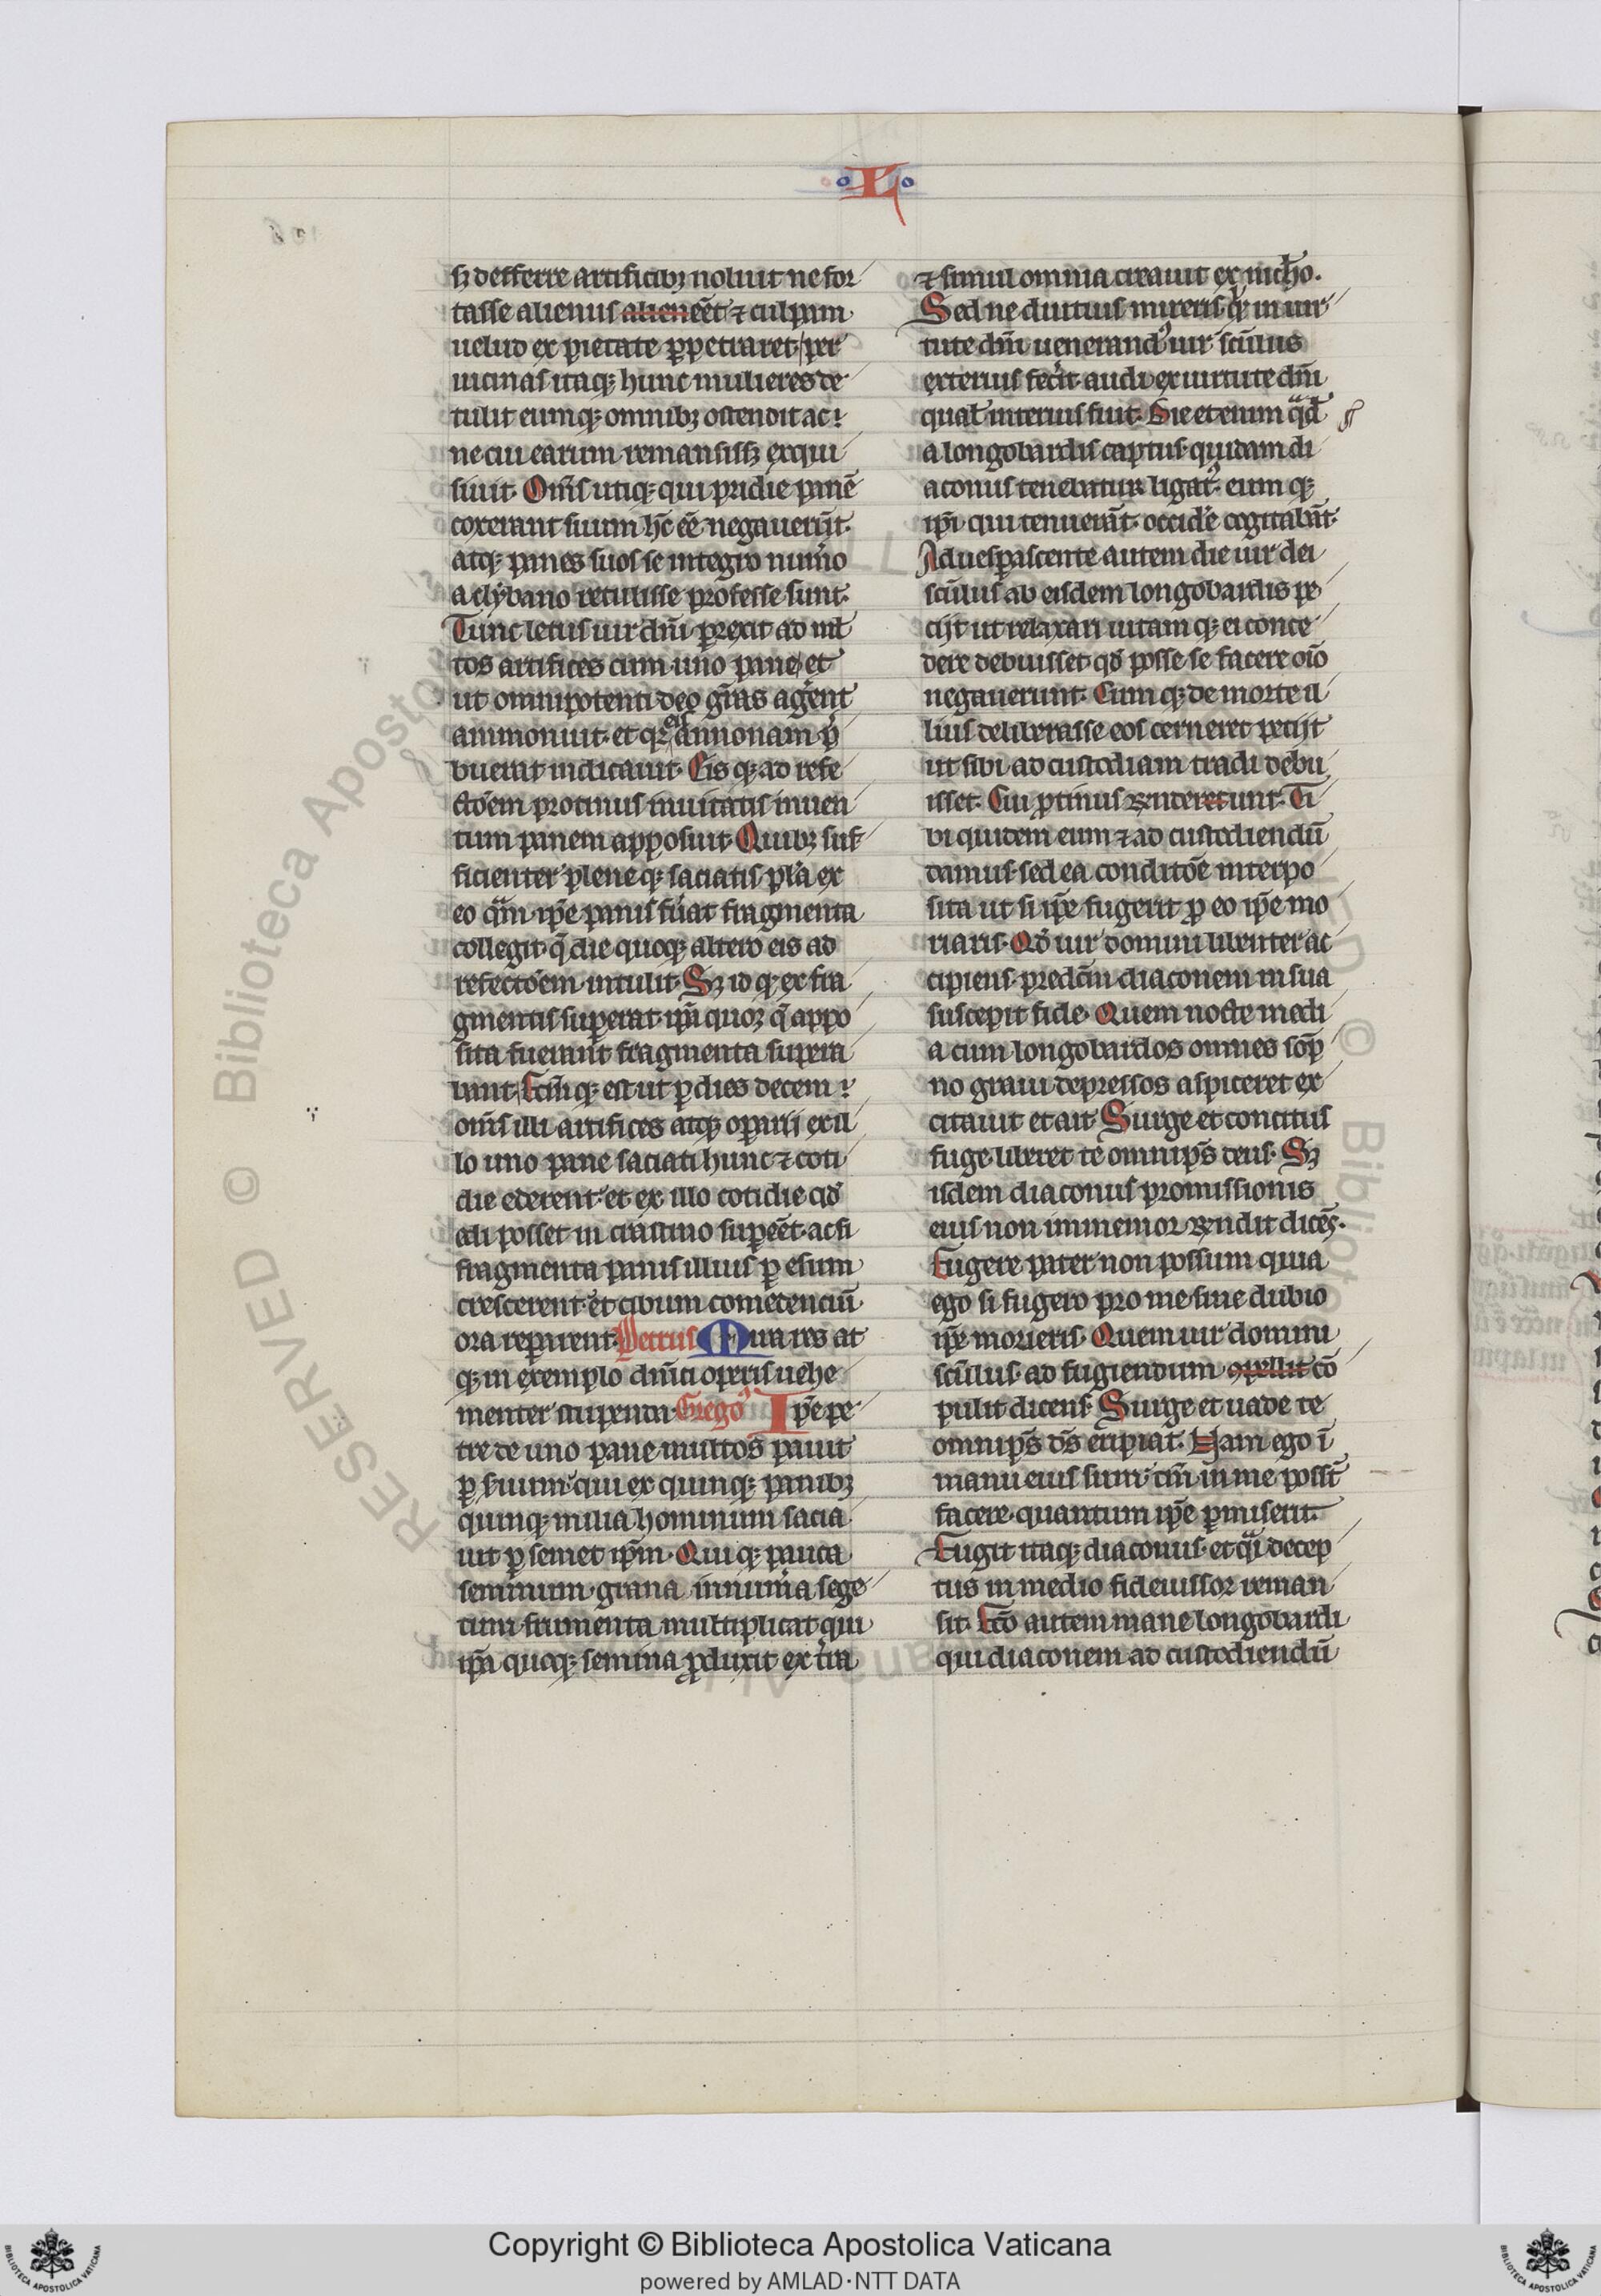 L
sꝫ defferre artificibꝫ noluit ne for
tasse alienus alien eēt ⁊ culpam
uelud ex pietate ꝑpetraret / per
uicinas itaqꝫ hunc mulieres de
tulit eumqꝫ omnibꝫ ostendit ac
ne cui earum remansissꝫ exqui
siuit. Om̄s utiqꝫ qui pridie panē
coxerant suum hͦc eē negauerūt.
atqꝫ panes suos se integro num̄o
a clybano retulisse professe sunt.
Tunc letus uir dm̄ perrexit ad ml̄
tos artifices cum uno pane / et
ut omnipotenti deo gr̄as agerent
ammonuit. et qꝛ eis annonam p̄
buerat indicauit. Eisqꝫ ad refe
ctōem protinus inuitatis inuen
tum panem apposuit. Quibꝫ suf
ficienter pleneqꝫ saciatis pl̄a ex
eo q̄m ip̄e panis fuerat fragmenta
collegit. q̄ die quoqꝫ altero eis ad
refectōem intulit. Sꝫ id qꝫ ex fra
gmentis suꝑerat ip̄a quoqꝫ q̄ appo
sita fuerant fragmenta supera
bant. Fctm̄qꝫ est ut ꝑ dies decem
om̄s illi artifices atqꝫ oꝑarij ex il
lo uno pane saciati hunc ⁊ coti
die ederent. et ex illo cotidie qd̄
edi posset in crastino suꝑeēt. ac si
fragmenta panis illius ꝑ esum
crescerent. et cibum comedenciū
ora reparent. Petrus Mira res at
qꝫ in exemplo dn̄ici operis uehe
menter stupenda. Gregoꝰ Ip̄e pe
tre de uno pane multos pauit
ꝑ seruum. qui ex quinqꝫ panibꝫ
quinqꝫ milia hominum sacia
uit ꝑ semet ip̄m. Qui qꝫ pauca
seminum grana innum̄a sege
tum frumenta multiplicat. qui
ip̄a quoqꝫ semina ꝓduxit ex t̄ra
⁊ simul omnia creauit ex nichͦo.
Sed ne diutius mireris qͥd in uir
tute dm̄ uenerandꝰ uir sc̄ulus
exterius fecit. audi ex uirtute dm̄
qual̄ interius fuit. Die etenim qͣd̄
a longobardis captus quidam di
aconus tenebatur ligatꝰ. eumqꝫ
ip̄i qui tenuerāt. occidē cogitabāt.
Aduesꝑascente autem die uir dei
sc̄ulus ab eisdem longobardis pe
cijt ut relaxari uitamqꝫ ei conce
dere debuisset. qd̄ posse se facere oīo
negauerunt. Cumqꝫ de morte il
lius deliberasse eos cerneret petijt
ut sibi ad custodiam tradi debu
isset. Cui ꝓtinus rn̄deretunt. Ti
bi quidem eum ⁊ ad custodiendū
damus. sed ea conditōe interpo
sita ut si ip̄e fugerit ꝓ eo ip̄e mo
riaris. Qd̄ uir domini libenter ac
cipiens. predcm̄ diaconem in sua
suscepit fide. Quem nocte medi
a cum longobardos omnes sop̄
no graui depressos aspiceret ex
citauit et ait. Surge et concitus
fuge. liberet te omnip̄s deus. Sꝫ
isdem diaconus promissionis
eius non immemor rn̄dit dicēs.
Fugere pater non possum quia
ego si fugero pro me sine dubio
ip̄e morieris. Quem uir domini
sc̄ulus ad fugiendum ꝯpellit cō
pulit dicens. Surge et uade te
omnip̄s ds̄ eripiat. Nam ego ī
manu eius sum. tm̄ in me poss̄t
facere quantum ip̄e ꝑmiserit.
Fugit itaqꝫ diaconus. et qͣi decep
tus in medio fideiussor reman
sit. Fcō autem mane longobardi
qui diaconem ad custodiendū
RESERVED © Biblioteca Apostolica
© Biblioteca
Copyright © Biblioteca Apostolica Vaticana
powered by AMLAD·NTT DATA
BIBLIOTECA APOSTOLICA VATICANA
BIBLIOTECA APOSTOLICA VATICANA